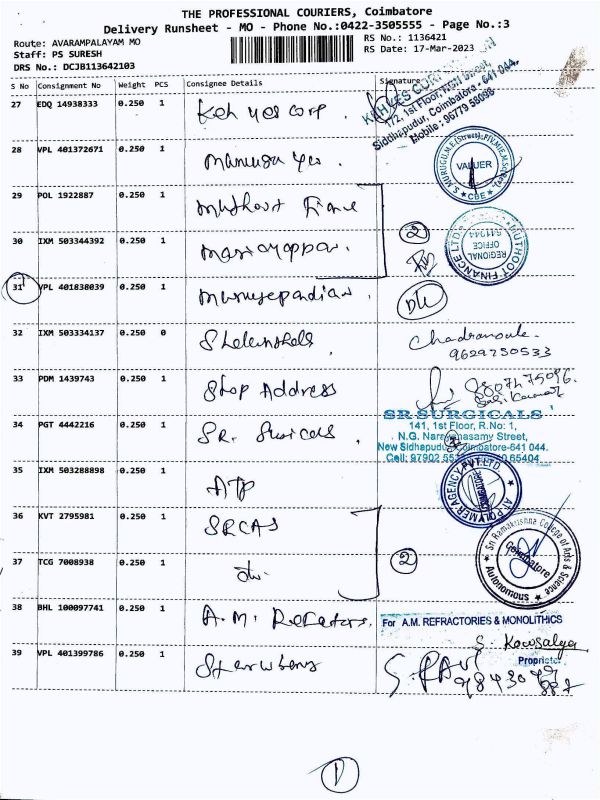 THE PROFESSIONAL COURIERS, Coimbatore
Delivery Runsheet - MO - Phone No.:0422-3505555 - Page No.:3
Route: AVARAMPALAYAM MO
RS No.: 1136421
Staff: PS SURESH
RS Date: 17-Mar-2023
DRS No.: DCJB113642103
S No Consignment No Weight PCS Consignee Details Signature
KEH YES CORPORATION
72, 1st Floor, NGN Street,
Siddhapudur, Coimbatore - 641 044.
Mobile : 96779 58098
27 EDQ 14938333 0.250 1 Keh yes corp.
28 VPL 401372671 0.250 1
VALUER
CBE
29 POL 1922887 0.250 1 Muthoot Finance
30 IXM 503344392 0.250 1 Mariayappan. 2
MUTHOOT FINANCE LTD.
REGIONAL
OFFICE
641044
31 VPL 401838039 0.250 1 Murugepandian.
32 IXM 503334137 0.250 0
9629750533
33 PDM 1439743 0.250 1 Stop Address
34 PGT 4442216 0.250 1 SR. Surgicals.
SR SURGICALS
141, 1st Floor, R.No: 1,
N.G. Narayanasamy Street,
New Sidhapudur, Coimbatore-641 044.
Cell: 97902 65404
35 IXM 503288898 0.250 1 ATP
POLYMER AGENCY PVT.LTD
COIMBATORE
36 KVT 2795981 0.250 1 SRCAS
37 TCG 7008938 0.250 1 do. 2
Sri Ramakrishna College of Arts & Science
Coimbatore
Autonomous
38 BHL 100097741 0.250 1 A.M. Refactors.
For A.M. REFRACTORIES & MONOLITHICS
S. Kowsalya
Proprietor
39 VPL 401399786 0.250 1
S. RAVI
1